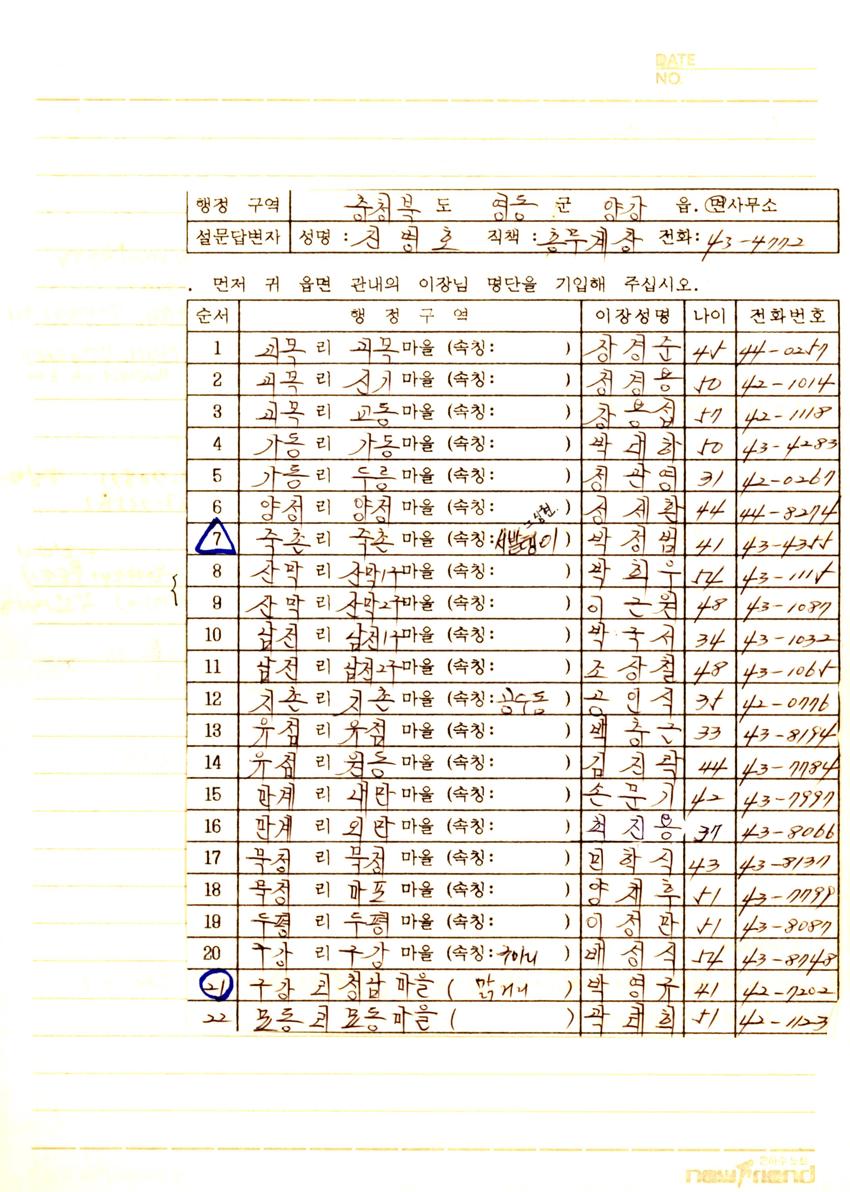 DATE
NO.
행정 구역 충청북 도 영동 군 양강 읍.면사무소
설문답변자 성명 : 진병호 직책 : 총무계장 전화: 43-4772
. 먼저 귀 읍면 관내의 이장님 명단을 기입해 주십시오.
순서 행정구역 이장성명 나이 전화번호
1 괴목 리 괴목 마을 (속칭: ) 장경준 45 44-0257
2 괴목 리 선기 마을 (속칭: ) 정경용 50 42-1014
3 괴목 리 교동 마을 (속칭: ) 장용섭 57 42-1118
4 가동 리 가동 마을 (속칭: ) 박래하 50 43-4283
5 가동 리 두릉 마을 (속칭: ) 정관영 31 42-0267
6 양정 리 양정 마을 (속칭: ) 정세환 44 44-8274
7 죽촌 리 죽촌 마을 (속칭: 사발댕이 ) 박정범 41 43-4355
8 산막 리 산막1구 마을 (속칭: ) 박희우 54 43-1115
9 산막 리 산막2구 마을 (속칭: ) 이근원 48 43-1087
10 남전 리 남전1구 마을 (속칭: ) 박국서 34 43-1032
11 남전 리 남전2구 마을 (속칭: ) 조상철 48 43-1065
12 지촌 리 지촌 마을 (속칭: 공수동 ) 공인석 35 42-0776
13 유점 리 유점 마을 (속칭: ) 백충근 33 43-8194
14 유점 리 원동 마을 (속칭: ) 김진곽 44 43-7784
15 만계 리 내만 마을 (속칭: ) 손문기 42 43-7997
16 만계 리 외만 마을 (속칭: ) 척진용 37 43-8066
17 묵정 리 묵정 마을 (속칭: ) 민학식 43 43-8137
18 묵정 리 마포 마을 (속칭: ) 양재후 51 43-7799
19 두평 리 두평 마을 (속칭: ) 이정만 51 43-8087
20 구강 리 구강 마을 (속칭: 구아니 ) 배성식 54 43-8748
21 구강 리 청남 마을 ( 맑거니 ) 박영규 41 42-7202
22 묘동 리 묘동 마을 ( ) 곽태희 51 42-1123
newfriend